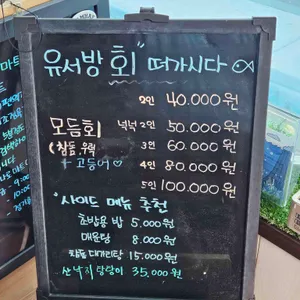 유서방 회" 떠가시다
2인 40.000원
모듬회 넉넉 2인 50.000원
(참돔, 우럭 3인 60.000원
+ 고등어♡ 4인 80.000원
5인 100.000원
"사이드 메뉴 추천
초밥용 밥 5.000원
매운탕 8.000원
대가리탕 15.000원
산낙지 탕탕이 35.000원